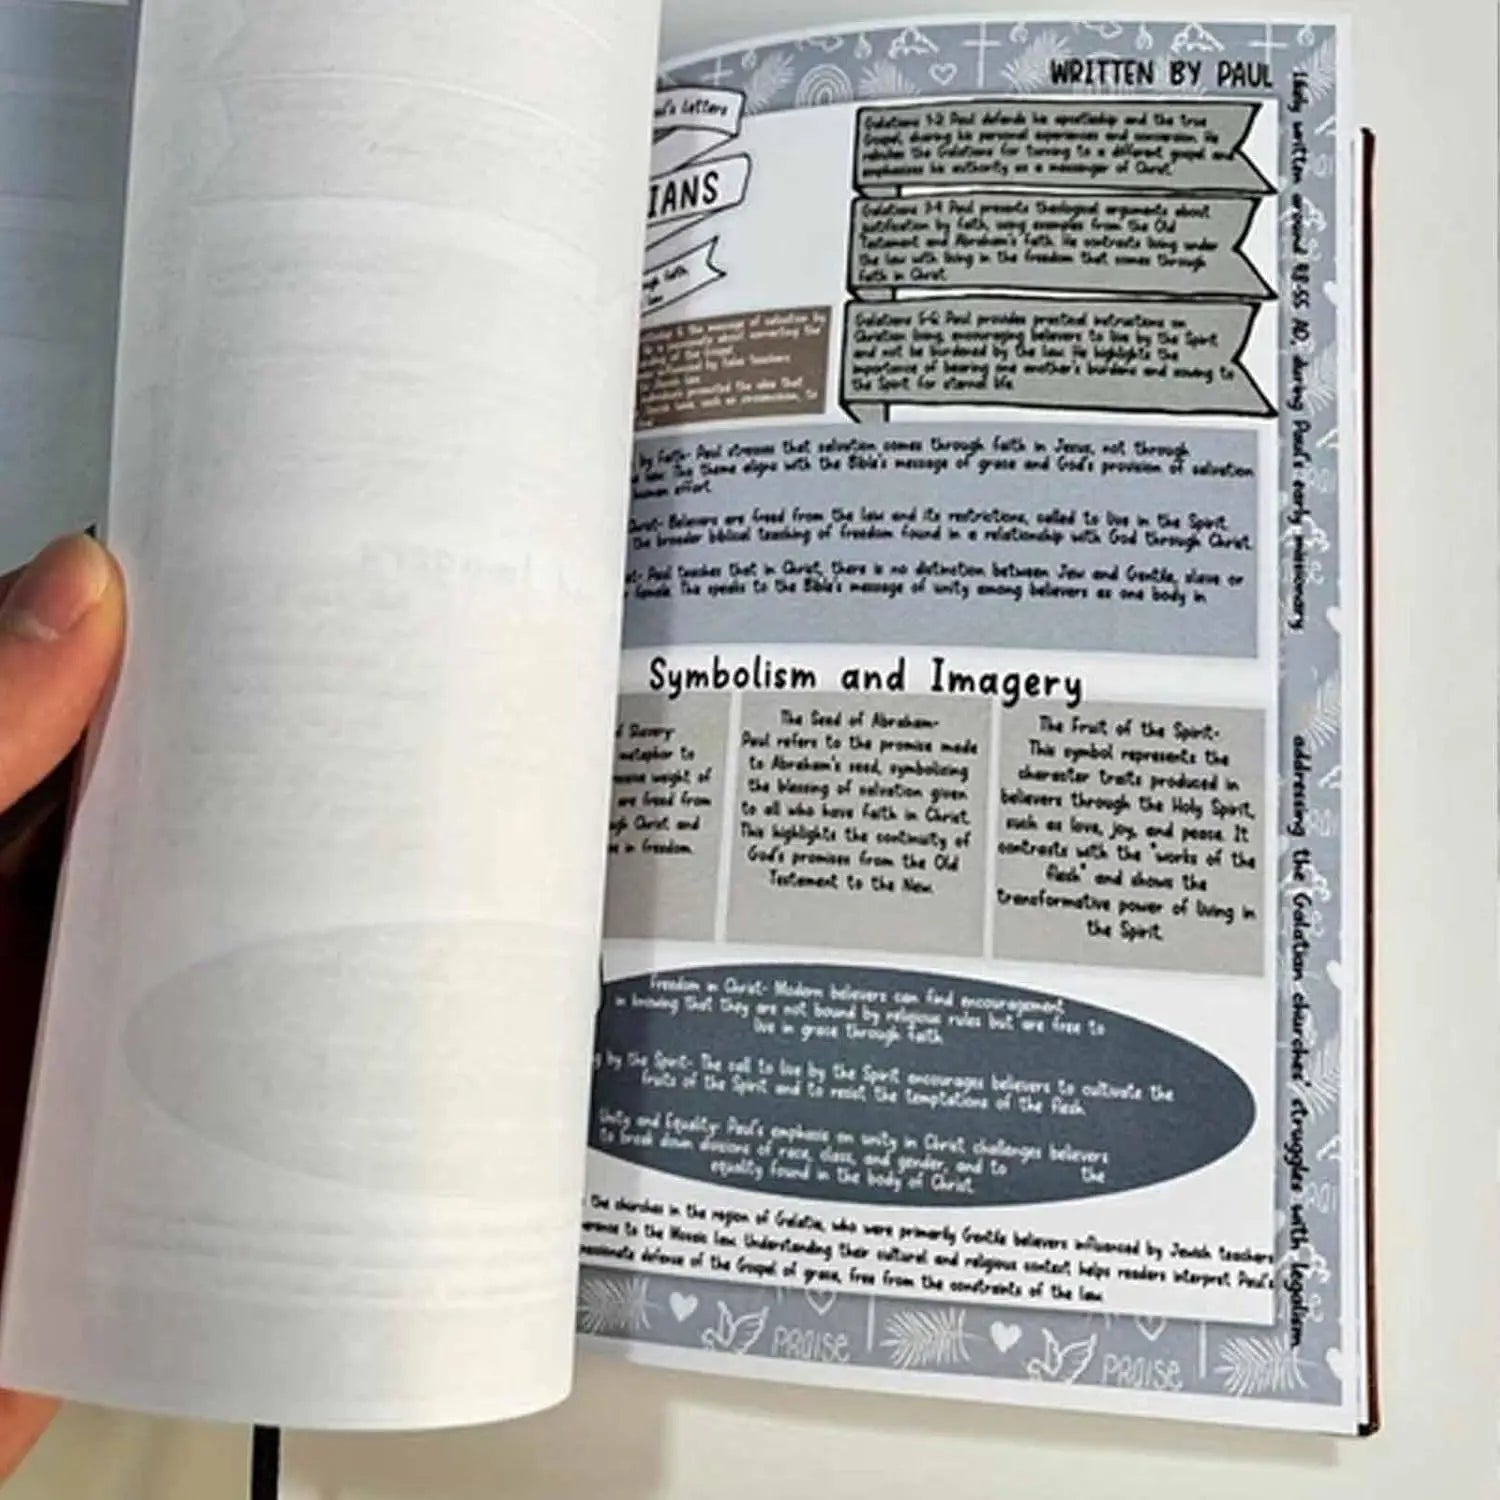 WRITTEN BY PAUL
Paul's Letters
IANS
Galatians 1-2: Paul defends his apostleship and the true
Gospel, sharing his personal experiences and conversion. He
rebukes the Galatians for turning to a different gospel and
emphasizes his authority as a messenger of Christ.
Galatians 3-4: Paul presents theological arguments about
justification by faith, using examples from the Old
Testament and Abraham's faith. He contrasts living under
the law with living in the freedom that comes through
faith in Christ.
Galatians 5-6: Paul provides practical instructions on
Christian living, encouraging believers to live by the Spirit
and not be burdened by the law. He highlights the
importance of bearing one another's burdens and sowing to
the Spirit for eternal life.
faith
law
the message of salvation by
is passionate about correcting the
of the Gospel
influenced by false teachers
promoted the idea that
laws, such as circumcision, to
by Faith- Paul stresses that salvation comes through faith in Jesus, not through
law. This theme aligns with the Bible's message of grace and God's provision of salvation
human effort.
Christ- Believers are freed from the law and its restrictions, called to live in the Spirit.
the broader biblical teaching of freedom found in a relationship with God through Christ.
Paul teaches that in Christ, there is no distinction between Jew and Gentile, slave or
female. This speaks to the Bible's message of unity among believers as one body in
Symbolism and Imagery
of Slavery-
metaphor to
weight of
are freed from
Christ and
in freedom.
The Seed of Abraham-
Paul refers to the promise made
to Abraham's seed, symbolizing
the blessing of salvation given
to all who have faith in Christ.
This highlights the continuity of
God's promises from the Old
Testament to the New.
The Fruit of the Spirit-
This symbol represents the
character traits produced in
believers through the Holy Spirit,
such as love, joy, and peace. It
contrasts with the "works of the
flesh" and shows the
transformative power of living in
the Spirit.
Freedom in Christ- Modern believers can find encouragement
in knowing that they are not bound by religious rules but are free to
live in grace through faith.
by the Spirit- The call to live by the Spirit encourages believers to cultivate the
fruits of the Spirit and to resist the temptations of the flesh.
Unity and Equality- Paul's emphasis on unity in Christ challenges believers
to break down divisions of race, class, and gender, and to the
equality found in the body of Christ.
the churches in the region of Galatia, who were primarily Gentile believers influenced by Jewish teachers
to the Mosaic law. Understanding their cultural and religious context helps readers interpret Paul's
passionate defense of the Gospel of grace, free from the constraints of the law.
Likely written around 48-55 AD, during Paul's early missionary
addressing the Galatian churches' struggles with legalism.
PRAISE
PRAISE